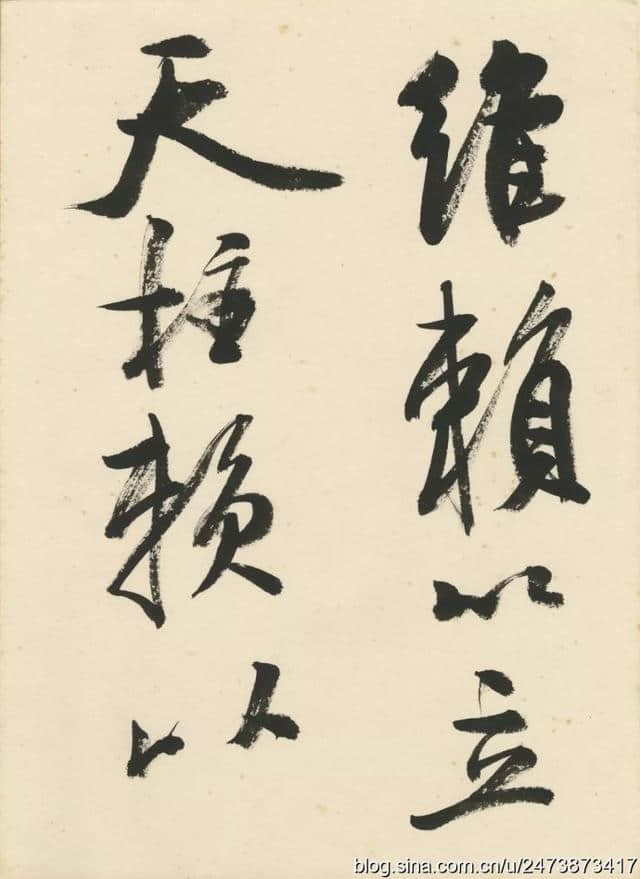 維賴以立
天柱賴以
blog.sina.com.cn/u/2473873417